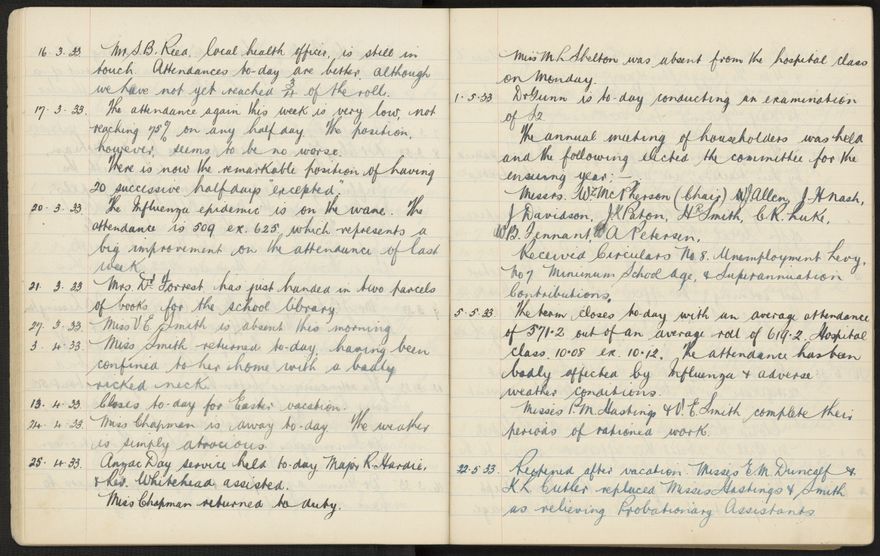 16.3.33 Mr S.B. Reed, local health officer, is still in
touch. Attendances to-day are better, although
we have not yet reached 3/4 of the roll.
17.3.33. The attendance again this week is very low, not
reaching 75% on any half day. The position,
however, seems to be no worse.
There is now the remarkable position of having
20 successive half days excepted".
20.3.33 The Influenza epidemic is on the wane. The
attendance is 509 ex. 625, which represents a
big improvement on the attendance of last
week.
21.3.33 Mrs. Forrest has just handed in two parcels
of books for the school library
27.3.33 Miss V.E. Smith is absent this morning
3.4.33 Miss Smith returned to-day, having been
confined to her home with a badly
ricked neck
13.4.33 Closes to-day for Easter vacation.
24.4.33 Miss Chapman is away to-day. The weather
is simply atrocious
25.4.33. Anzac Day service held to-day Major R. Hardie,
& Rev. Whitehead assisted.
Miss Chapman returned to duty.
Miss M.L. Shelton was absent from the hospital class
on Monday.
1.5.33 Dr Gunn is to-day conducting an examination
of S2
The annual meeting of householders was held
and the following elected the committee for the
ensuing year:—
Messrs. Wm McPherson (Chair) W J Allen, J. H Nash,
J Davidson, J.R. Paton, H Smith, C.R. Luke,
W B. Tennant, A Petersen.
Received Circulars No 8. Unemployment Levy,
No 7 Minimum School Age, & Superannuation
Contributions.
5.5.33 The term closes to-day with an average attendance
of 571.2 out of an average roll of 619.2. Hospital
class 10.08 ex. 10.12. The attendance has been
badly affected by Influenza & adverse
weather conditions.
Misses P.M. Hastings & V.E. Smith complete their
periods of rationed work.
22.5.33 Reopened after vacation. Misses E.M. Duncalf &
K.L. Cutler replaced Misses Hastings & Smith
as relieving Probationary Assistants